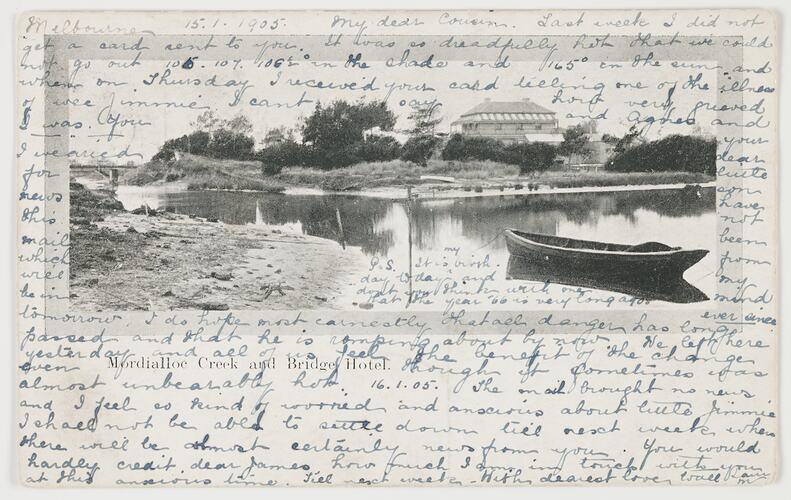 Melbourne 15.1.1905. My dear Cousin. Last week I did not
get a card sent to you. It was so dreadfully hot that we could
not go out 105. 107. 106½° in the shade and 165° in the sun and
when on Thursday I received your card telling one of the illness
of wee Jimmie I can't say how very grieved
I was. You and Agnes and
I wearied your
for dear
news little
this son
mail have
which not
will been
be in from
tomorrow. my
mind
ever since
P.S. It is my birth-
day to day and
don't you think with me
that the year '60 is very long ago?
I do hope most earnestly that all danger has long
passed and that he is romping about by now. We left here
yesterday and all of us feel the benefit of the change
even though it sometimes was
Mordialloc Creek and Bridge Hotel.
almost unbearably hot. 16.1.05. The mail brought no news
and I feel so kind of worried and anxious about little Jimmie
I shall not be able to settle down till next week when
there will be almost certainly news from you. You would
hardly credit, dear James how much I am in touch with you
at this anxious time. Till next week. With dearest love